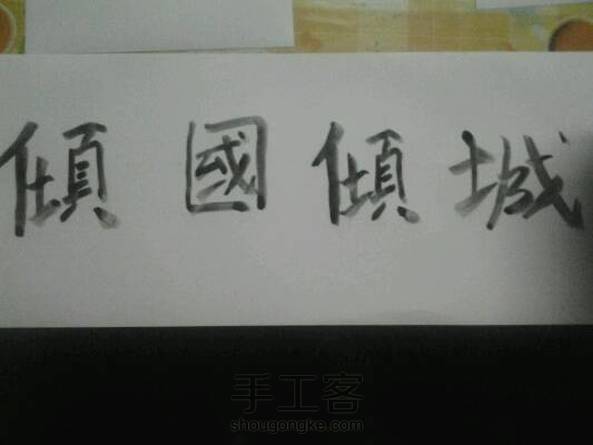 傾國傾城
手工客
shougongke.com